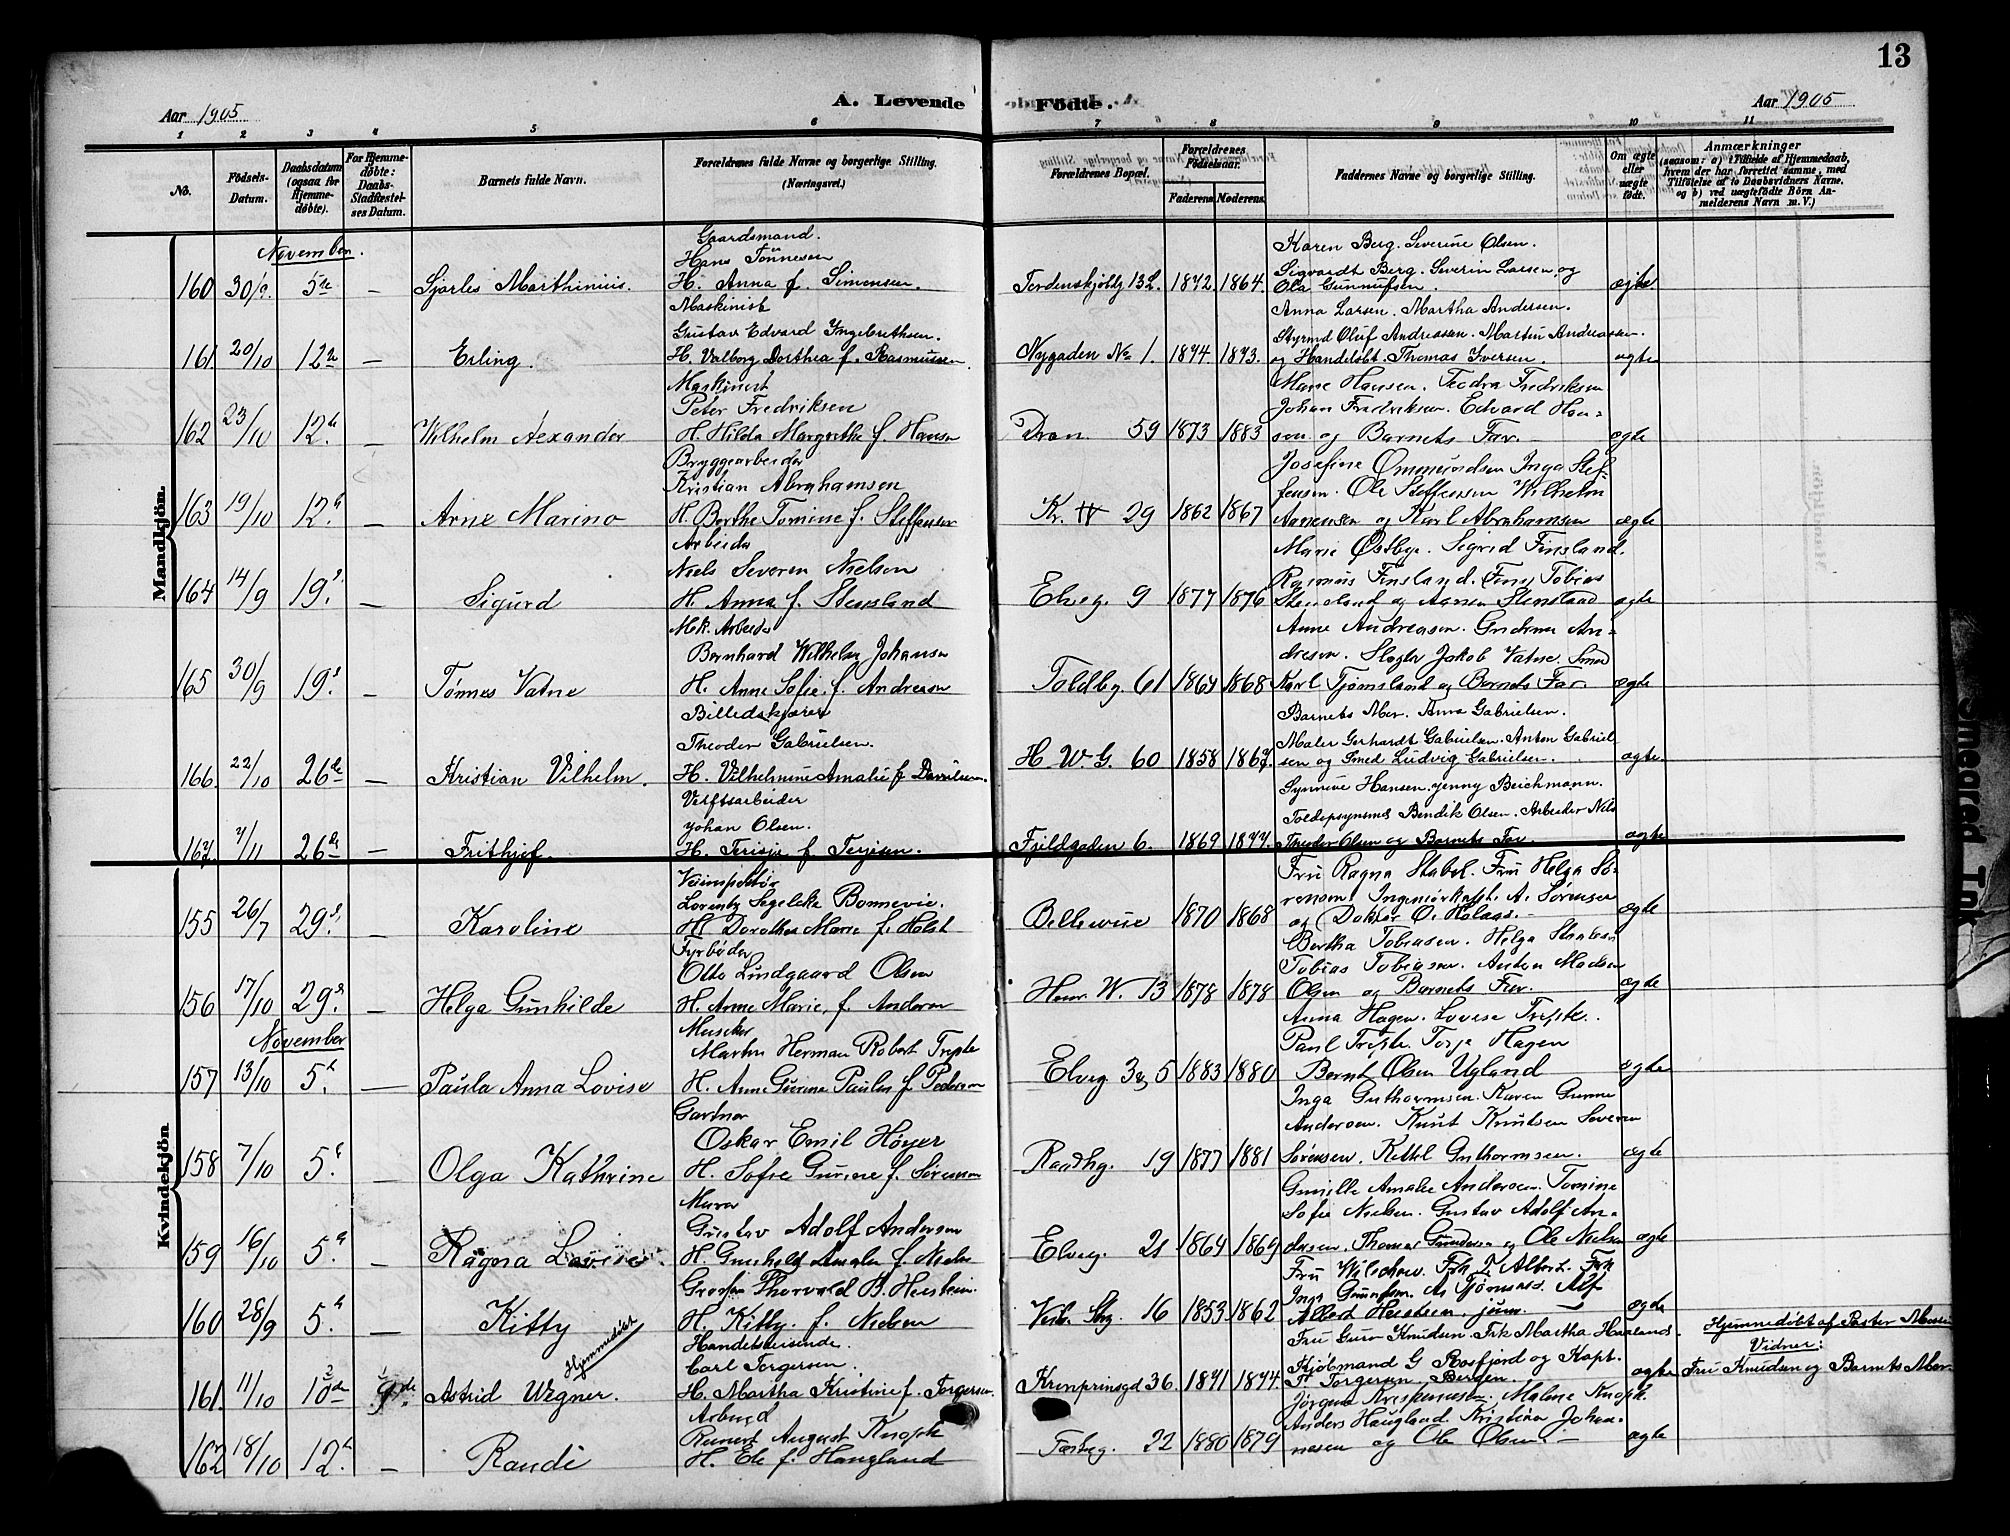 13
Aar 1905
A. Levende Fødte.
Aar 1905
1 2 3 4 5 6 7 8 9 10 11
No.
Fødsels-Datum.
Daabsdatum (ogsaa for Hjemmedøbte).
For Hjemmedøbte: Daabs-Stadfæstelses Datum.
Barnets fulde Navn.
Forældrenes fulde Navne og borgerlige Stilling. (Næringsvei.)
Forældrenes Bopæl.
Forældrenes Fødselsaar.
Faderens Moderens
Faddernes Navne og borgerlige Stilling.
Om ægte eller uægte født.
Anmærkninger
(saasom: a) i Tilfælde af Hjemmedaab, hvem der har forrettet samme, med Tilføielse af to Daabsvidners Navne, og b) ved uægtefødte Børn Anmelderens Navn m. V.)
Mandkjön.
November.
Gaardsmand.
Hans Tönnesen
160 30/9. 5te — Sjarles Marthinius. H. Anna f. Simonsen. Tordenskjoldg 132. 1872 1864.
Karen Berg. Severine Olsen.
Sigvardt Berg. Severin Larsen og
Ola Gunnufsen. ægte
Maskinist
Gustav Edvard Ingebrethsen.
161. 20/10 12te — Erling. H. Valborg Dorthea f. Rasmussen. Nygaden No 1. 1874. 1873.
Anna Larsen. Martha Andersen.
Styrmd Oluf Andreassen. Martin Andreassen.
og Handelsbt. Thomas Iversen. ægte
Maskinist
Peter Fredriksen
162 23/10 12. — Wilhelm Alexander H. Hilda Margrethe f. Hansen Dron. 59 1873 1883
Marie Hansen. Teodra Fredriksen
Johan Fredriksen. Edvard Han-
sen og Barnets Far. — ægte
Bryggearbeider
Kristian Abrahamsen
163 19/10 12. — Arne Marino H. Berthe Tomine f. Steffensen Kr. IV 29 1862 1867
Josefine Ommundsen Inga Stef-
fensen. Ole Steffensen Wilhelm
Aanensen og Karl Abrahamsen ægte
Arbeider
Niels Severin Nielsen
164 14/9 19. — Sigurd H. Anna f. Stensland Elveg. 9 1877 1876
Marie Østbye. Sigrid Finsland.
Rasmus Finsland. Tobias
Stensland og ægte
Mek. Arbeider
Bernhard Wilhelm Johansen
165 30/9 19. — Tønnes Vatne H. Anne Sofie f. Andresen Toldbg. 61 1864 1868
Anne Andreasen. Gudrun An-
dresen. Slagter Jakob Vatne. Smed
Karl Tjomsland og Barnets Far. ægte
Billedskjærer
Theodor Gabrielsen.
166. 22/10 26de — Kristian Vilhelm. H. Vilhelmine Amalie f. Danielsen. H W. G. 60 1858 1867.
Barnets Mor. Anna Gabrielsen.
Maler Gerhardt Gabrielsen. Anton Gabriel-
sen og Smed Ludvig Gabrielsen. ægte
Verftsarbeider
Johan Olsen.
167. 7/11 26de — Frithjof. H. Terisje f. Terjesen. Fjeldgaden 6. 1869 1877.
Synneve Hansen. Jenny Beichmann.
Toldopsynsmd Bendik Olsen. Arbeider Nils
Theodor Olsen og Barnets Far. ægte
Kvindekjön
Veiinspektør
Lorentz Segelcke Bonnevie.
155 26/7 29. — Karoline H. Dorothea Marie f. Holst Bellevue 1870 1868
Fru Ragna Stabel. Fru Helga Sö-
rensen. Ingeniørkapt. A. Sørensen
og Doktor O. Holaas. — ægte
Fyrbøder
Otto Lundgaard Olsen
156 17/10 29. — Helga Gunhilde H. Anne Marie f. Andersen Henr. W. 13 1878 1878
Bertha Tobiasen. Helga
Tobias Tobiasen. Anton Madsen
Olsen og Barnets Far. ægte
November
Musiker
Martin Herman Robert Trepte
157 13/10 5. — Paula Anna Lovise H. Anne Gurine Pauline f. Pedersen Elveg. 3 5 1883 1880
Anna Hagen. Lovise Trepte.
Paul Trepte. Torje Hagen
Bernt Olsen Ugland ægte
Gartner
Oskar Emil Høyer
158 7/10 5. — Olga Kathrine H. Sofie Gurine f. Sørensen Raadhg. 19 1877 1881
Inga Guthormsen. Karen Gurine
Andersen. Knut Knutsen Severin
Sørensen. Kittel Guthormsen. ægte
Murer
Gustav Adolf Andersen
159 16/10 5. — Ragna Lovise. H. Gunhild Amalie f. Nielsen Elveg. 21 1864 1869
Gunille Amalie Andersen. Tomine
Sofie Nielsen. Gustav Adolf An-
dersen. Thomas Gundersen og Ole Nielsen ægte
Thorvald B. Heistein.
160 28/9 5. — Kitty H. Kitty f. Nielsen Vest. Stg. 16 1853 1862
Fru Wilschow. Frk
Alf
Albert Heistein junr. — ægte
Handelsreisende
Carl Torgersen.
161. 11/10 10de 9de. Astrid Wegner. Hjemmedøbt H. Martha Kristine f. Torgersen. Kronprinsgd 36. 1871 1874.
Fru Guro Knudsen. Frk Martha Haaland.
Kjøbmand G. Rosfjord og Kapt.
T. Torgersen, Bergen. ægte
Hjemmedøbt af Pastor
Vidner:
Fru Knudsen og Barnets Mor.
Arbeid
Reinert August Knopk
162 18/10 12. — Randi H. Ele f. Haugland Tarbeg. 22 1880 1879
Malene Knopk.
Anders Haugland. Kristian Johan-
nesen og Ole Olsen. — ægte